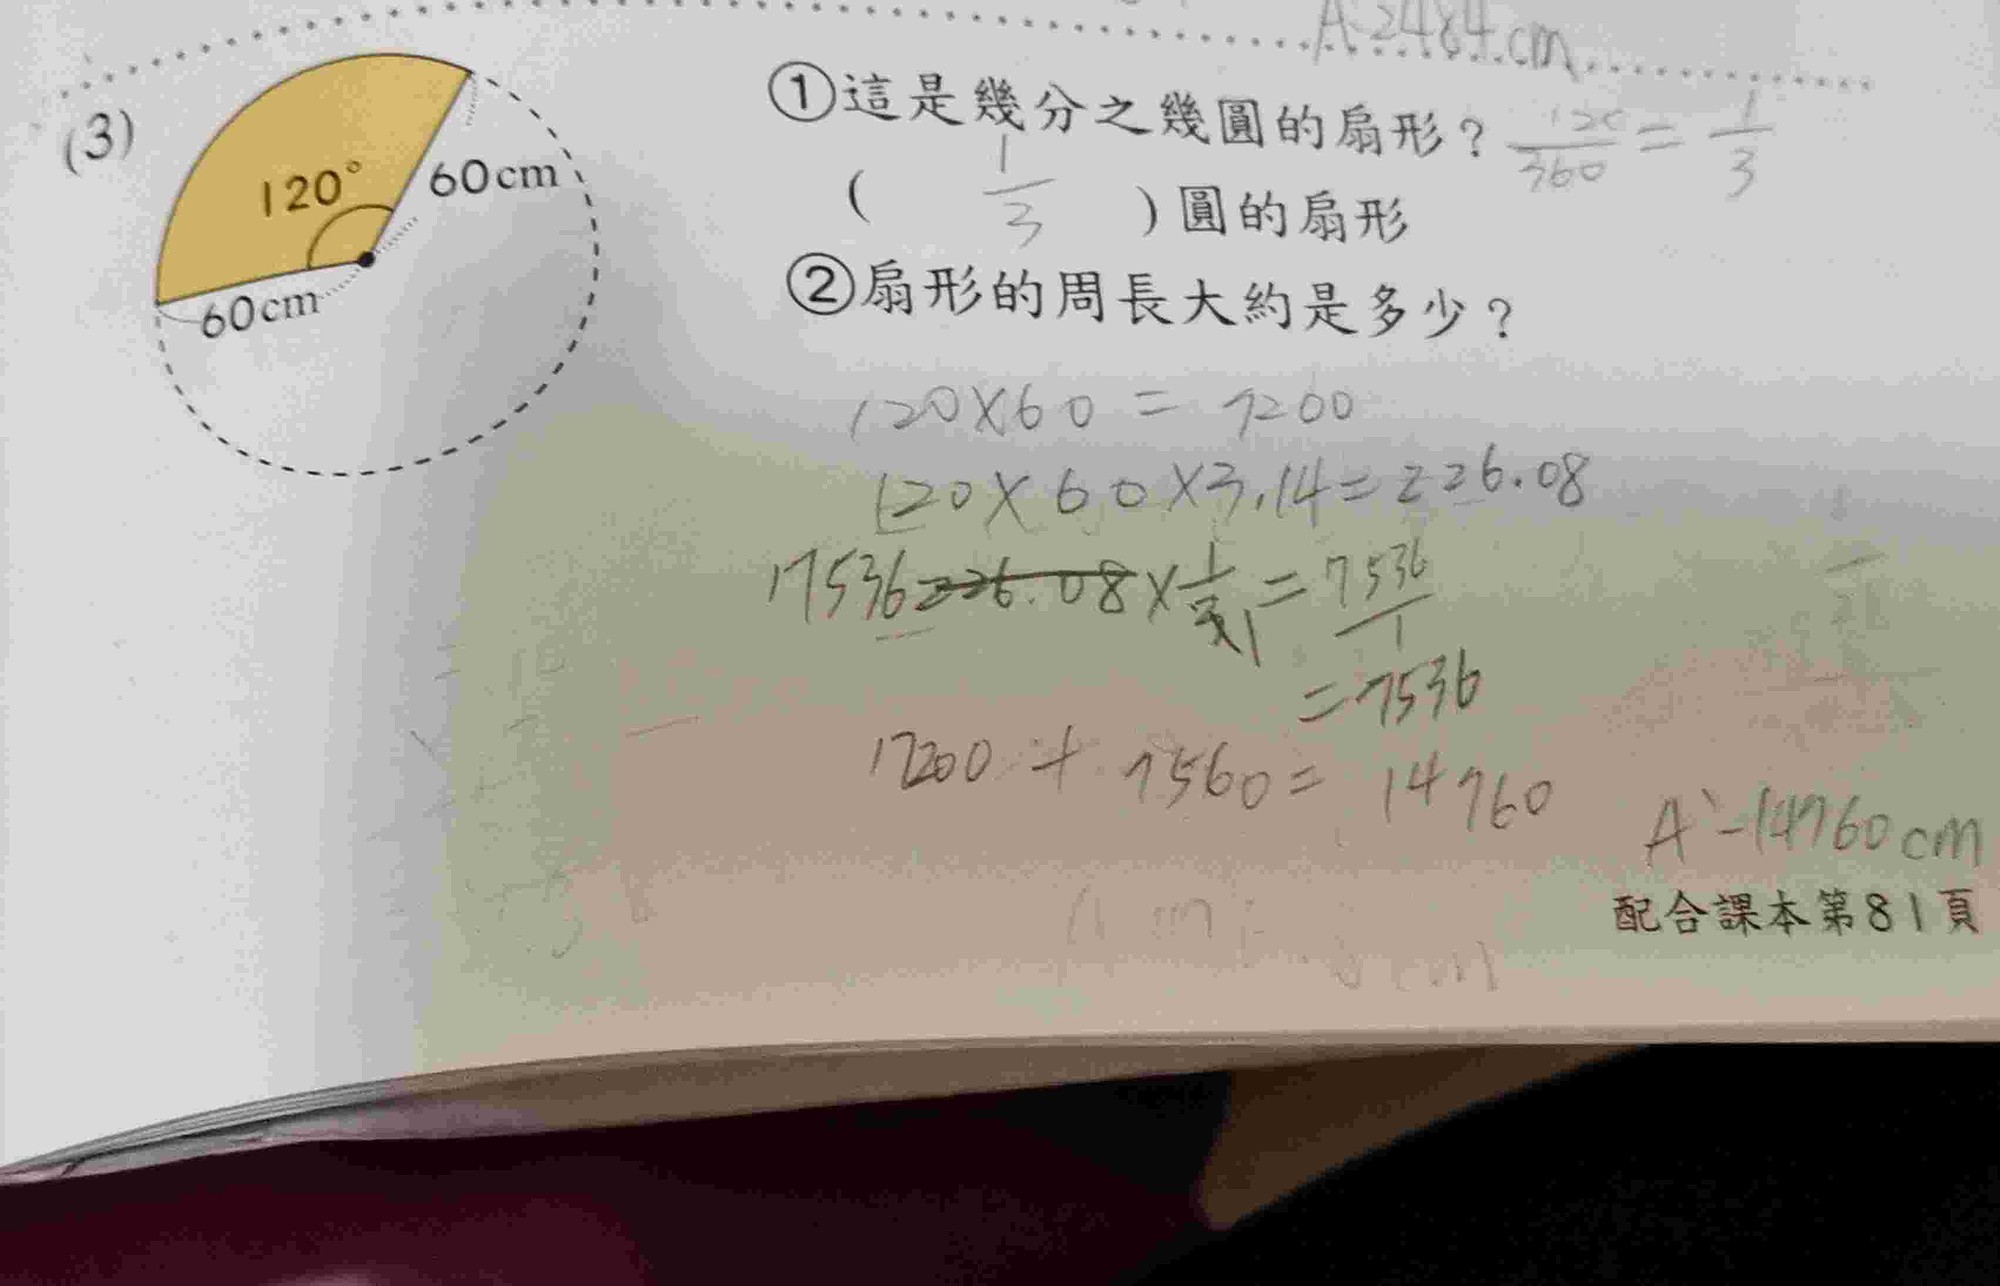 A 2484 cm
(3)
120°
60cm
60cm
①這是幾分之幾圓的扇形？ 120/360 = 1/3
( 1/3 )圓的扇形
②扇形的周長大約是多少？
120×60 = 7200
120×60×3.14=226.08
17536 226.08 × 1/3 1 = 7536/1
=7536
7200 + 7560 = 14760
A -14760 cm
配合課本第81頁